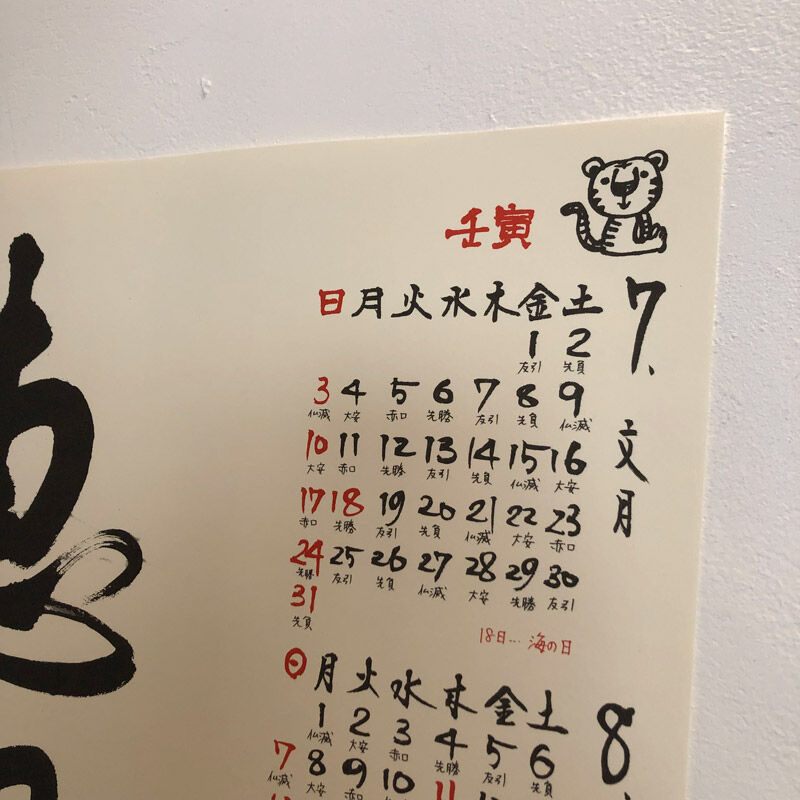 壬寅
7、
文月
日 月 火 水 木 金 土
1 2
友引 先負
3 4 5 6 7 8 9
仏滅 大安 赤口 先勝 友引 先負 仏滅
10 11 12 13 14 15 16
大安 赤口 先勝 友引 先負 仏滅 大安
17 18 19 20 21 22 23
赤口 先勝 友引 先負 仏滅 大安 赤口
24 25 26 27 28 29 30
先勝 友引 先負 仏滅 大安 先勝 友引
31
先負
18日… 海の日
8
日 月 火 水 木 金 土
1 2 3 4 5 6
仏滅 大安 赤口 先勝 友引 先負
7 8 9 10 11
仏滅 大安 赤口